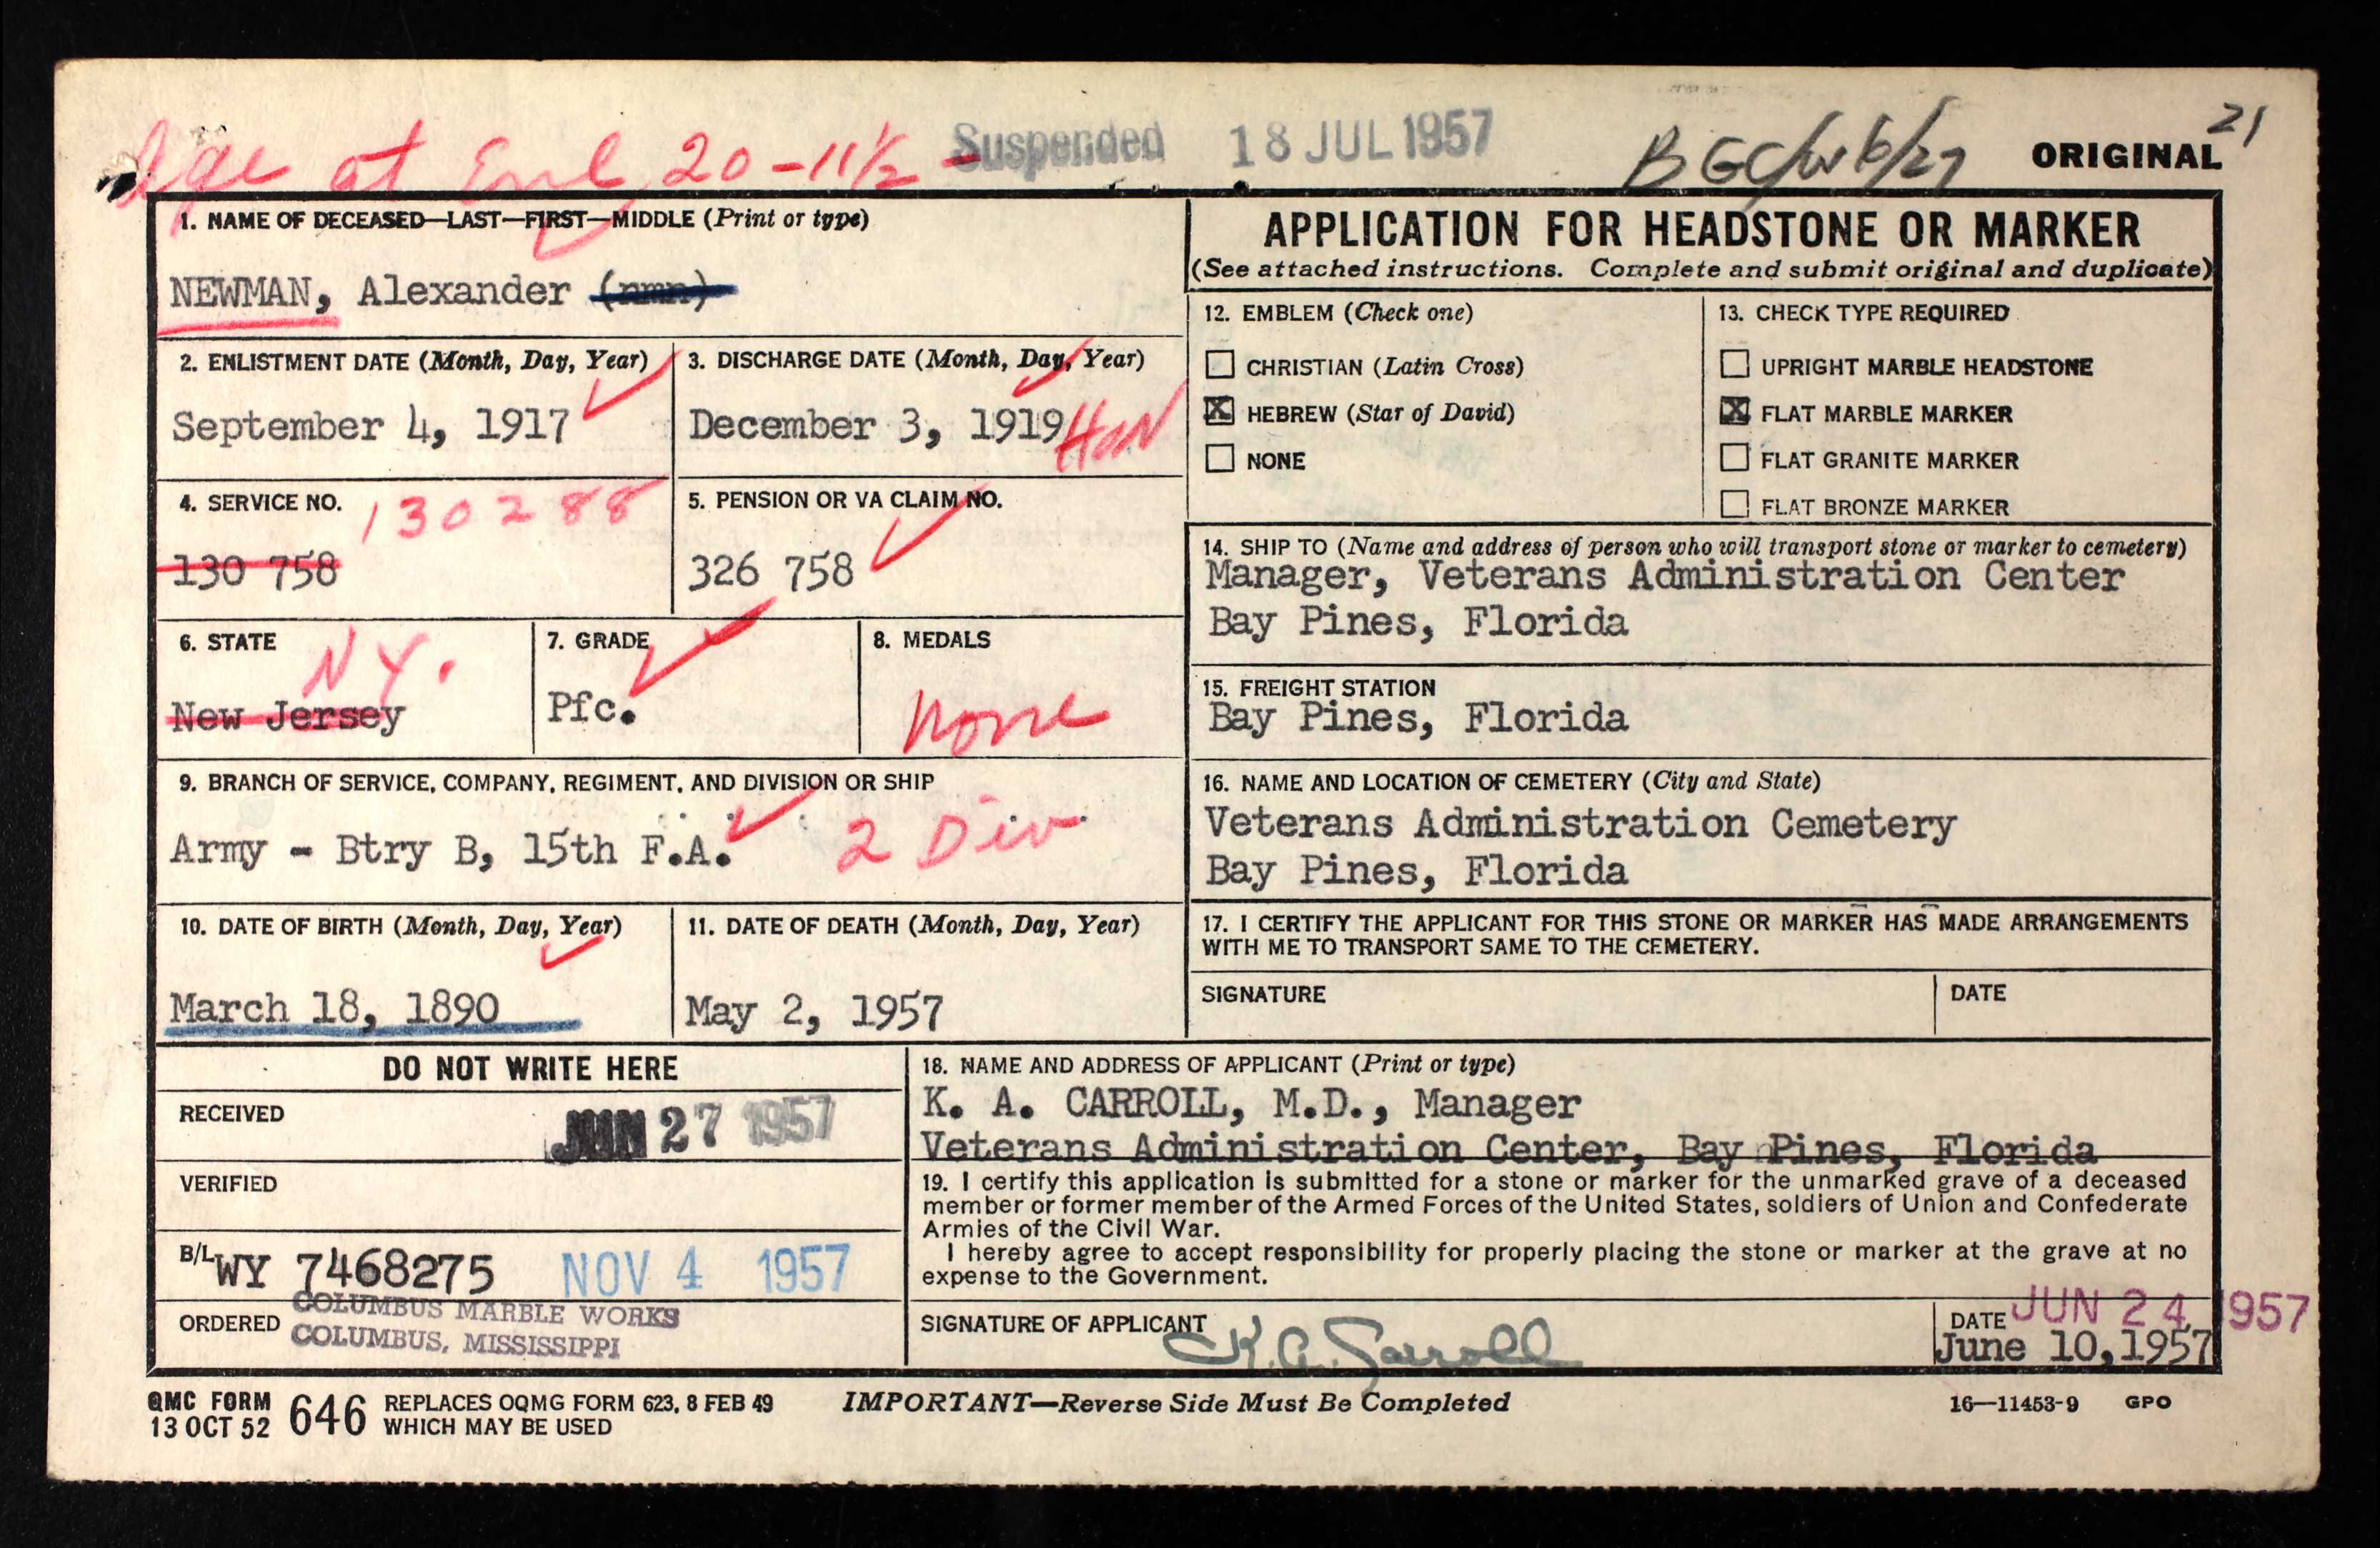 Age at Enl 20-11½ - Suspended 18 JUL 1957 BGC/W 6/27 ORIGINAL 21
1. NAME OF DECEASED—LAST—FIRST—MIDDLE (Print or type)
NEWMAN, Alexander (nmn)
2. ENLISTMENT DATE (Month, Day, Year)
September 4, 1917
3. DISCHARGE DATE (Month, Day, Year)
December 3, 1919 Hon
4. SERVICE NO. 130288
130 758
5. PENSION OR VA CLAIM NO.
326 758
6. STATE
N Y.
New Jersey
7. GRADE
Pfc.
8. MEDALS
None
9. BRANCH OF SERVICE, COMPANY, REGIMENT, AND DIVISION OR SHIP
Army - Btry B, 15th F.A. 2 Div
10. DATE OF BIRTH (Month, Day, Year)
March 18, 1890
11. DATE OF DEATH (Month, Day, Year)
May 2, 1957
APPLICATION FOR HEADSTONE OR MARKER
(See attached instructions. Complete and submit original and duplicate)
12. EMBLEM (Check one)
CHRISTIAN (Latin Cross)
X HEBREW (Star of David)
NONE
13. CHECK TYPE REQUIRED
UPRIGHT MARBLE HEADSTONE
X FLAT MARBLE MARKER
FLAT GRANITE MARKER
FLAT BRONZE MARKER
14. SHIP TO (Name and address of person who will transport stone or marker to cemetery)
Manager, Veterans Administration Center
Bay Pines, Florida
15. FREIGHT STATION
Bay Pines, Florida
16. NAME AND LOCATION OF CEMETERY (City and State)
Veterans Administration Cemetery
Bay Pines, Florida
17. I CERTIFY THE APPLICANT FOR THIS STONE OR MARKER HAS MADE ARRANGEMENTS
WITH ME TO TRANSPORT SAME TO THE CEMETERY.
SIGNATURE
DATE
DO NOT WRITE HERE
RECEIVED JUN 27 1957
VERIFIED
B/L WY 7468275 NOV 4 1957
ORDERED COLUMBUS MARBLE WORKS
COLUMBUS, MISSISSIPPI
18. NAME AND ADDRESS OF APPLICANT (Print or type)
K. A. CARROLL, M.D., Manager
Veterans Administration Center, Bay Pines, Florida
19. I certify this application is submitted for a stone or marker for the unmarked grave of a deceased
member or former member of the Armed Forces of the United States, soldiers of Union and Confederate
Armies of the Civil War.
I hereby agree to accept responsibility for properly placing the stone or marker at the grave at no
expense to the Government.
SIGNATURE OF APPLICANT K.A. Carroll
DATE JUN 24 1957
June 10, 1957
QMC FORM
13 OCT 52 646 REPLACES OQMG FORM 623, 8 FEB 49
WHICH MAY BE USED
IMPORTANT—Reverse Side Must Be Completed
16—11453-9 GPO